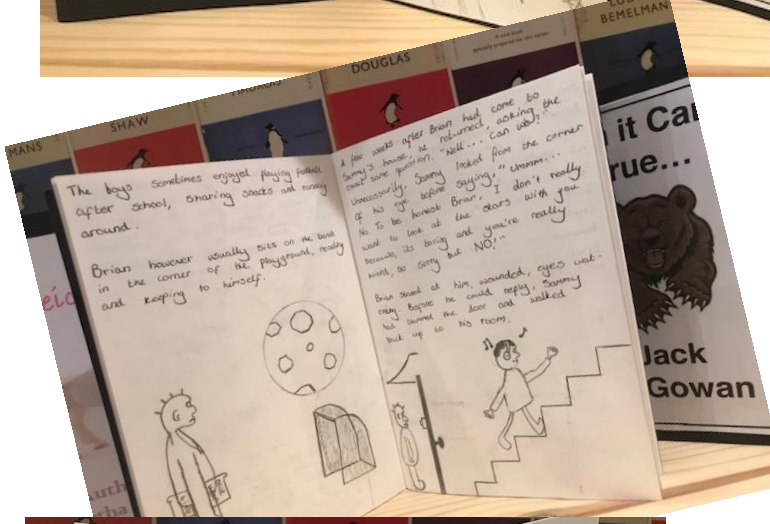 MANS
SHAW
MAUROIS
DOUGLAS
A new book
specially prepared for this series
BEMELMAN
The boys sometimes enjoyed playing football
after school, sharing snacks and running
around.
Brian however usually sits on the bench
in the corner of the playground, reading
and keeping to himself.
A few weeks after Brian had come to
Sammy's house, he returned, asking the
exact same question. "Well... Can we?"
Unnecessarily, Sammy looked from the corner
of his eye before saying, "Ummm...
No. To be honest Brian, I don't really
want to look at the stars with you
because, its boring and you're really
weird, so sorry but NO!"
Brian stared at him, wounded, eyes wat-
ering. Before he could reply, Sammy
had slammed the door and walked
back up to his room.
it Ca
rue...
Jack
Gowan